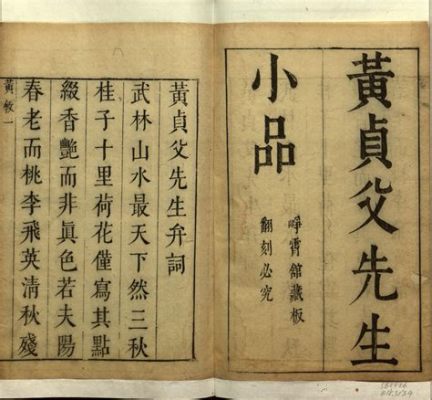 黃貞父先生
小品
崢霄館藏板
翻刻必究
黃貞父先生弁詞
武林山水最天下然三秋
桂子十里荷花僅寫其點
綴香艷而非眞色若夫陽
春老而桃李飛英清秋殘